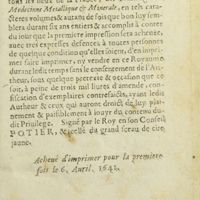 tous les lieux de la
Medecine Metallique & Minerale, en tels cara-
cteres, volumes & autans de fois que bon luy sem-
blera durant six ans entiers & accomplis à conter
du jour que la premiere impression sera acheuée,
auec tres expresses defences à toutes personnes
de quelque condition qu'elles soient, d'en impri-
mer faire imprimer, ny vendre en ce Royaume
durant ledit temps sans le consentement de l'Au-
theur, sous quelque pretexte & occasion que ce
soit, à peine de trois mil liures d'amende, con-
fiscation d'exemplaires contrefaicts, ayans ledit
Autheur, & ceux qui auront droict de luy plai-
nement & paisiblement à iouyr du contenu du-
dit Priuilege. Signé par le Roy en son Conseil
POTIER, & scellé du grand sceau de cire
jaune.
Acheué d'imprimer pour la premiere
fois le 6. Auril, 1642.